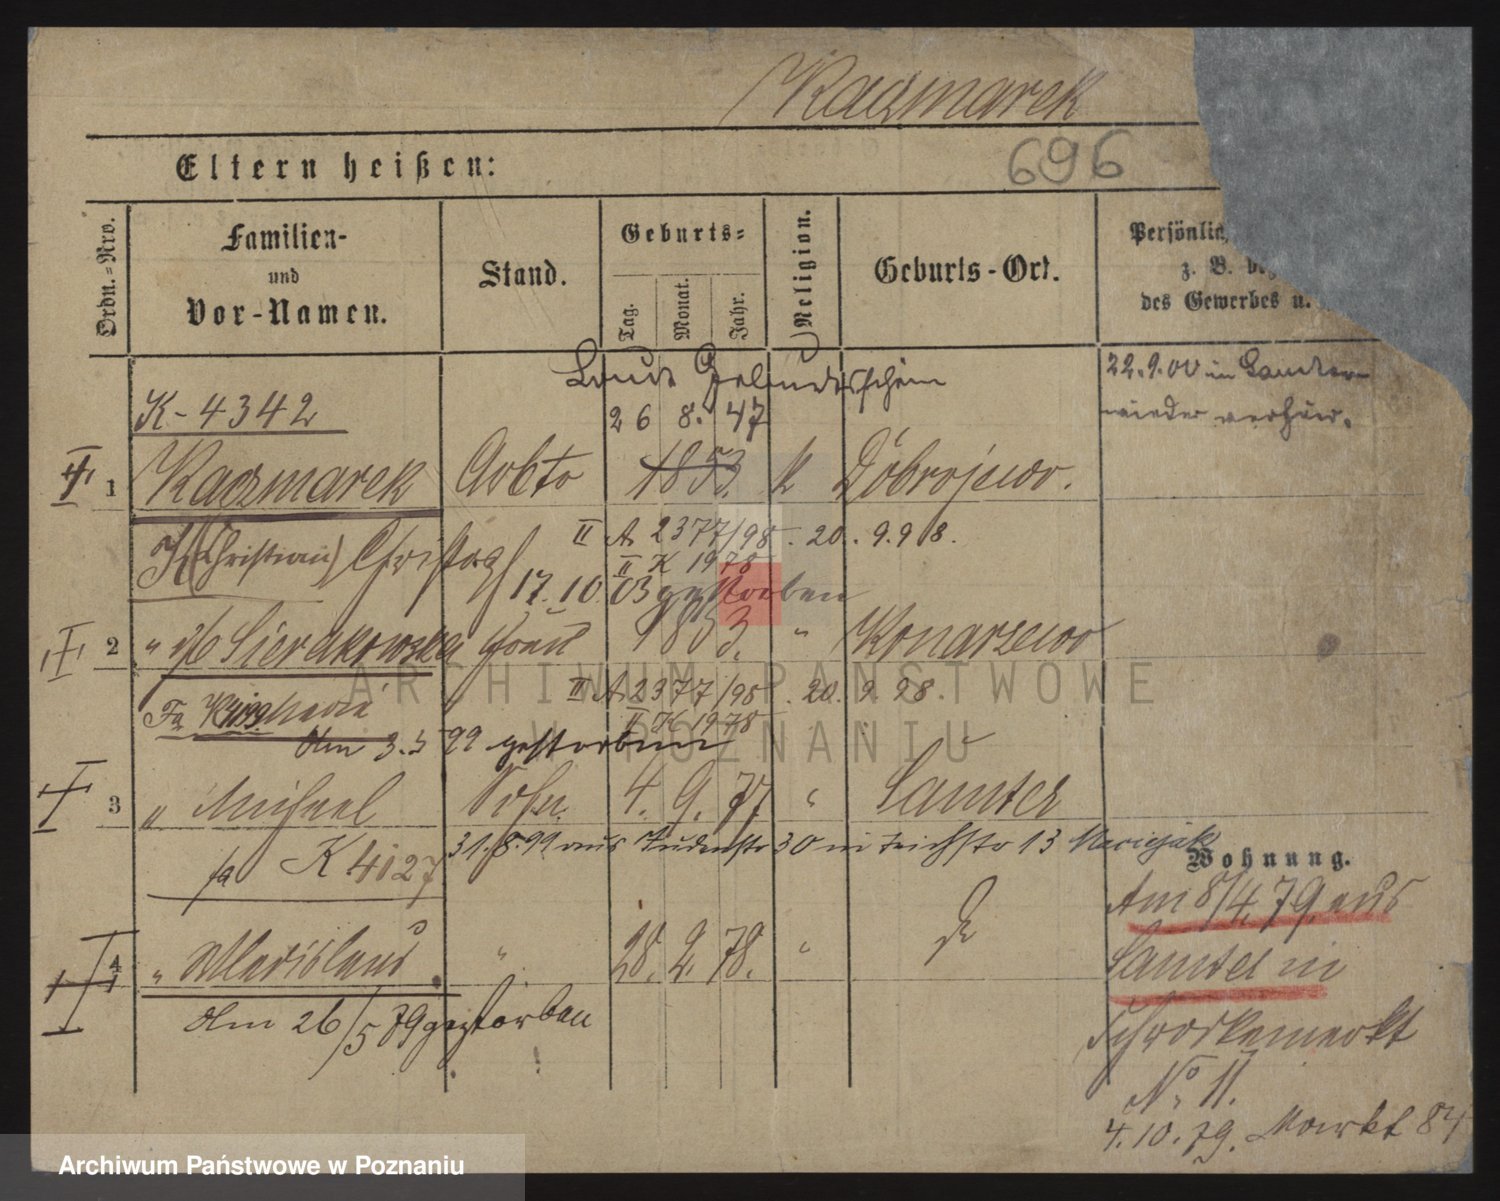 Kaczmarek
696
Eltern heißen:
Ordn.-Nro.
Familien-
und
Vor-Namen.
Stand.
Geburts-
Tag.
Monat.
Jahr.
Religion.
Geburts-Ort.
Persönlich
z. B. 
des Gewerbes u.
Laut Geburtsschein
22.9.00 in Samter
wieder verheir.
K-4342
26 8. 47
1 Kaczmarek Arbtr 1853. k Dobrojewo.
(Christian) Christoph
II A 2377/98. 20. 9. 98.
II K 1978
17. 10. 03 gestorben
2 " Sierakowska Frau 1853. " Konarzewo
II A 2377/98. 20. 9. 98.
II K 1978
Maria
Am 3.5 99 gestorben
3 " Michael Sohn 4. 9. 77 " Samter
31.8.99 aus Judenstr 30 in Teichstr 13 Maciejak
K 4127
Wohnung.
Am 8/4 79 aus
4 " Wladislaus " 28. 2. 78. "
Samter in
Am 26/5 79 gestorben
Schrodkamarkt
No 11.
4.10.79. Markt 84
ARCHIWUM PAŃSTWOWE
W POZNANIU
Archiwum Państwowe w Poznaniu